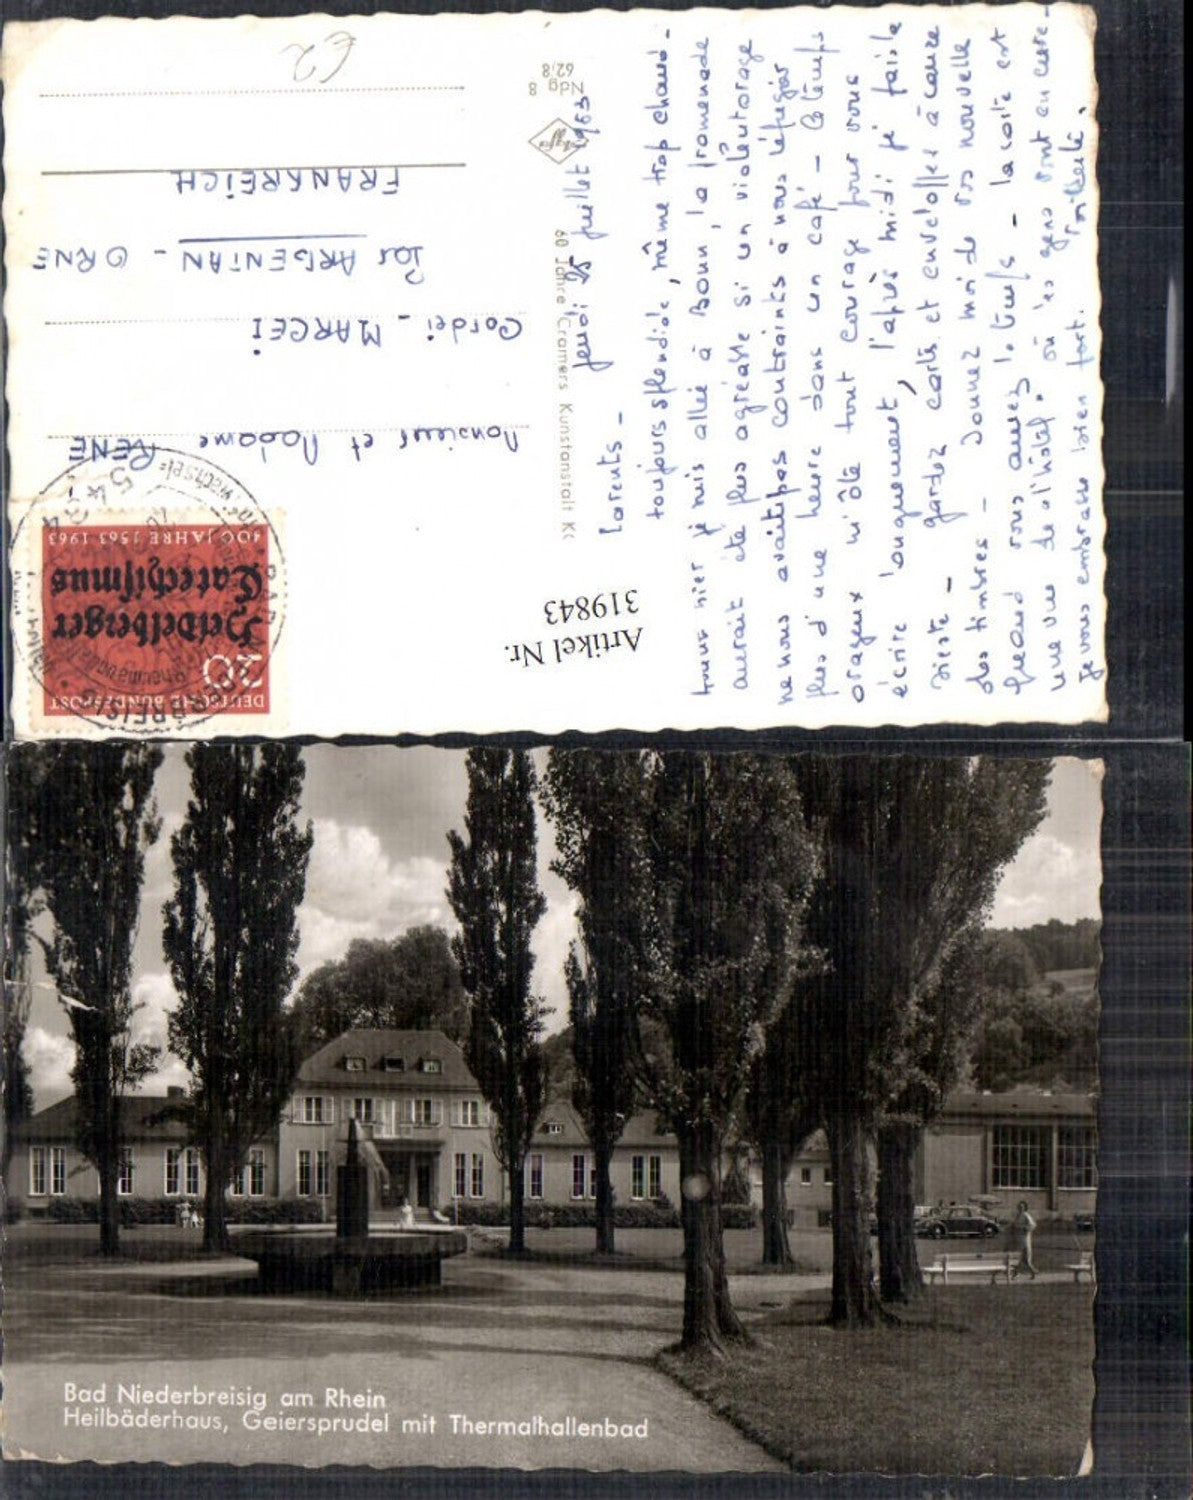 Parents -
jeudi 25 juillet 1963
toujours splendide, même trop chaud -
hier je suis allée à Bonn, la promenade
aurait été plus agréable si un violent orage
ne nous avait pas contraints à nous réfugier
plus d'une heure dans un café - le temps
orageux m'ôte tout courage pour vous
écrire longuement, l'après midi je fais la
sieste - gardez carte et enveloppes à cause
des timbres - donnez moi de vos nouvelle
quand vous aurez le temps - la carte est
une vue de l'hôtel où les gens sont en cure -
je vous embrasse bien fort.
60 Jahre Cramers Kunstanstalt K
Agfa
Ndg 8
62/8
€2
Monsieur et Madame RENE
Cordei - MARCEI
par ARGENTAN - ORNE
FRANKREICH
DEUTSCHE BUNDESPOST
20
Heidelberger
Catechismus
400 JAHRE 1563 1963
Artikel Nr.
319843
Bad Niederbreisig am Rhein
Heilbäderhaus, Geiersprudel mit Thermalhallenbad